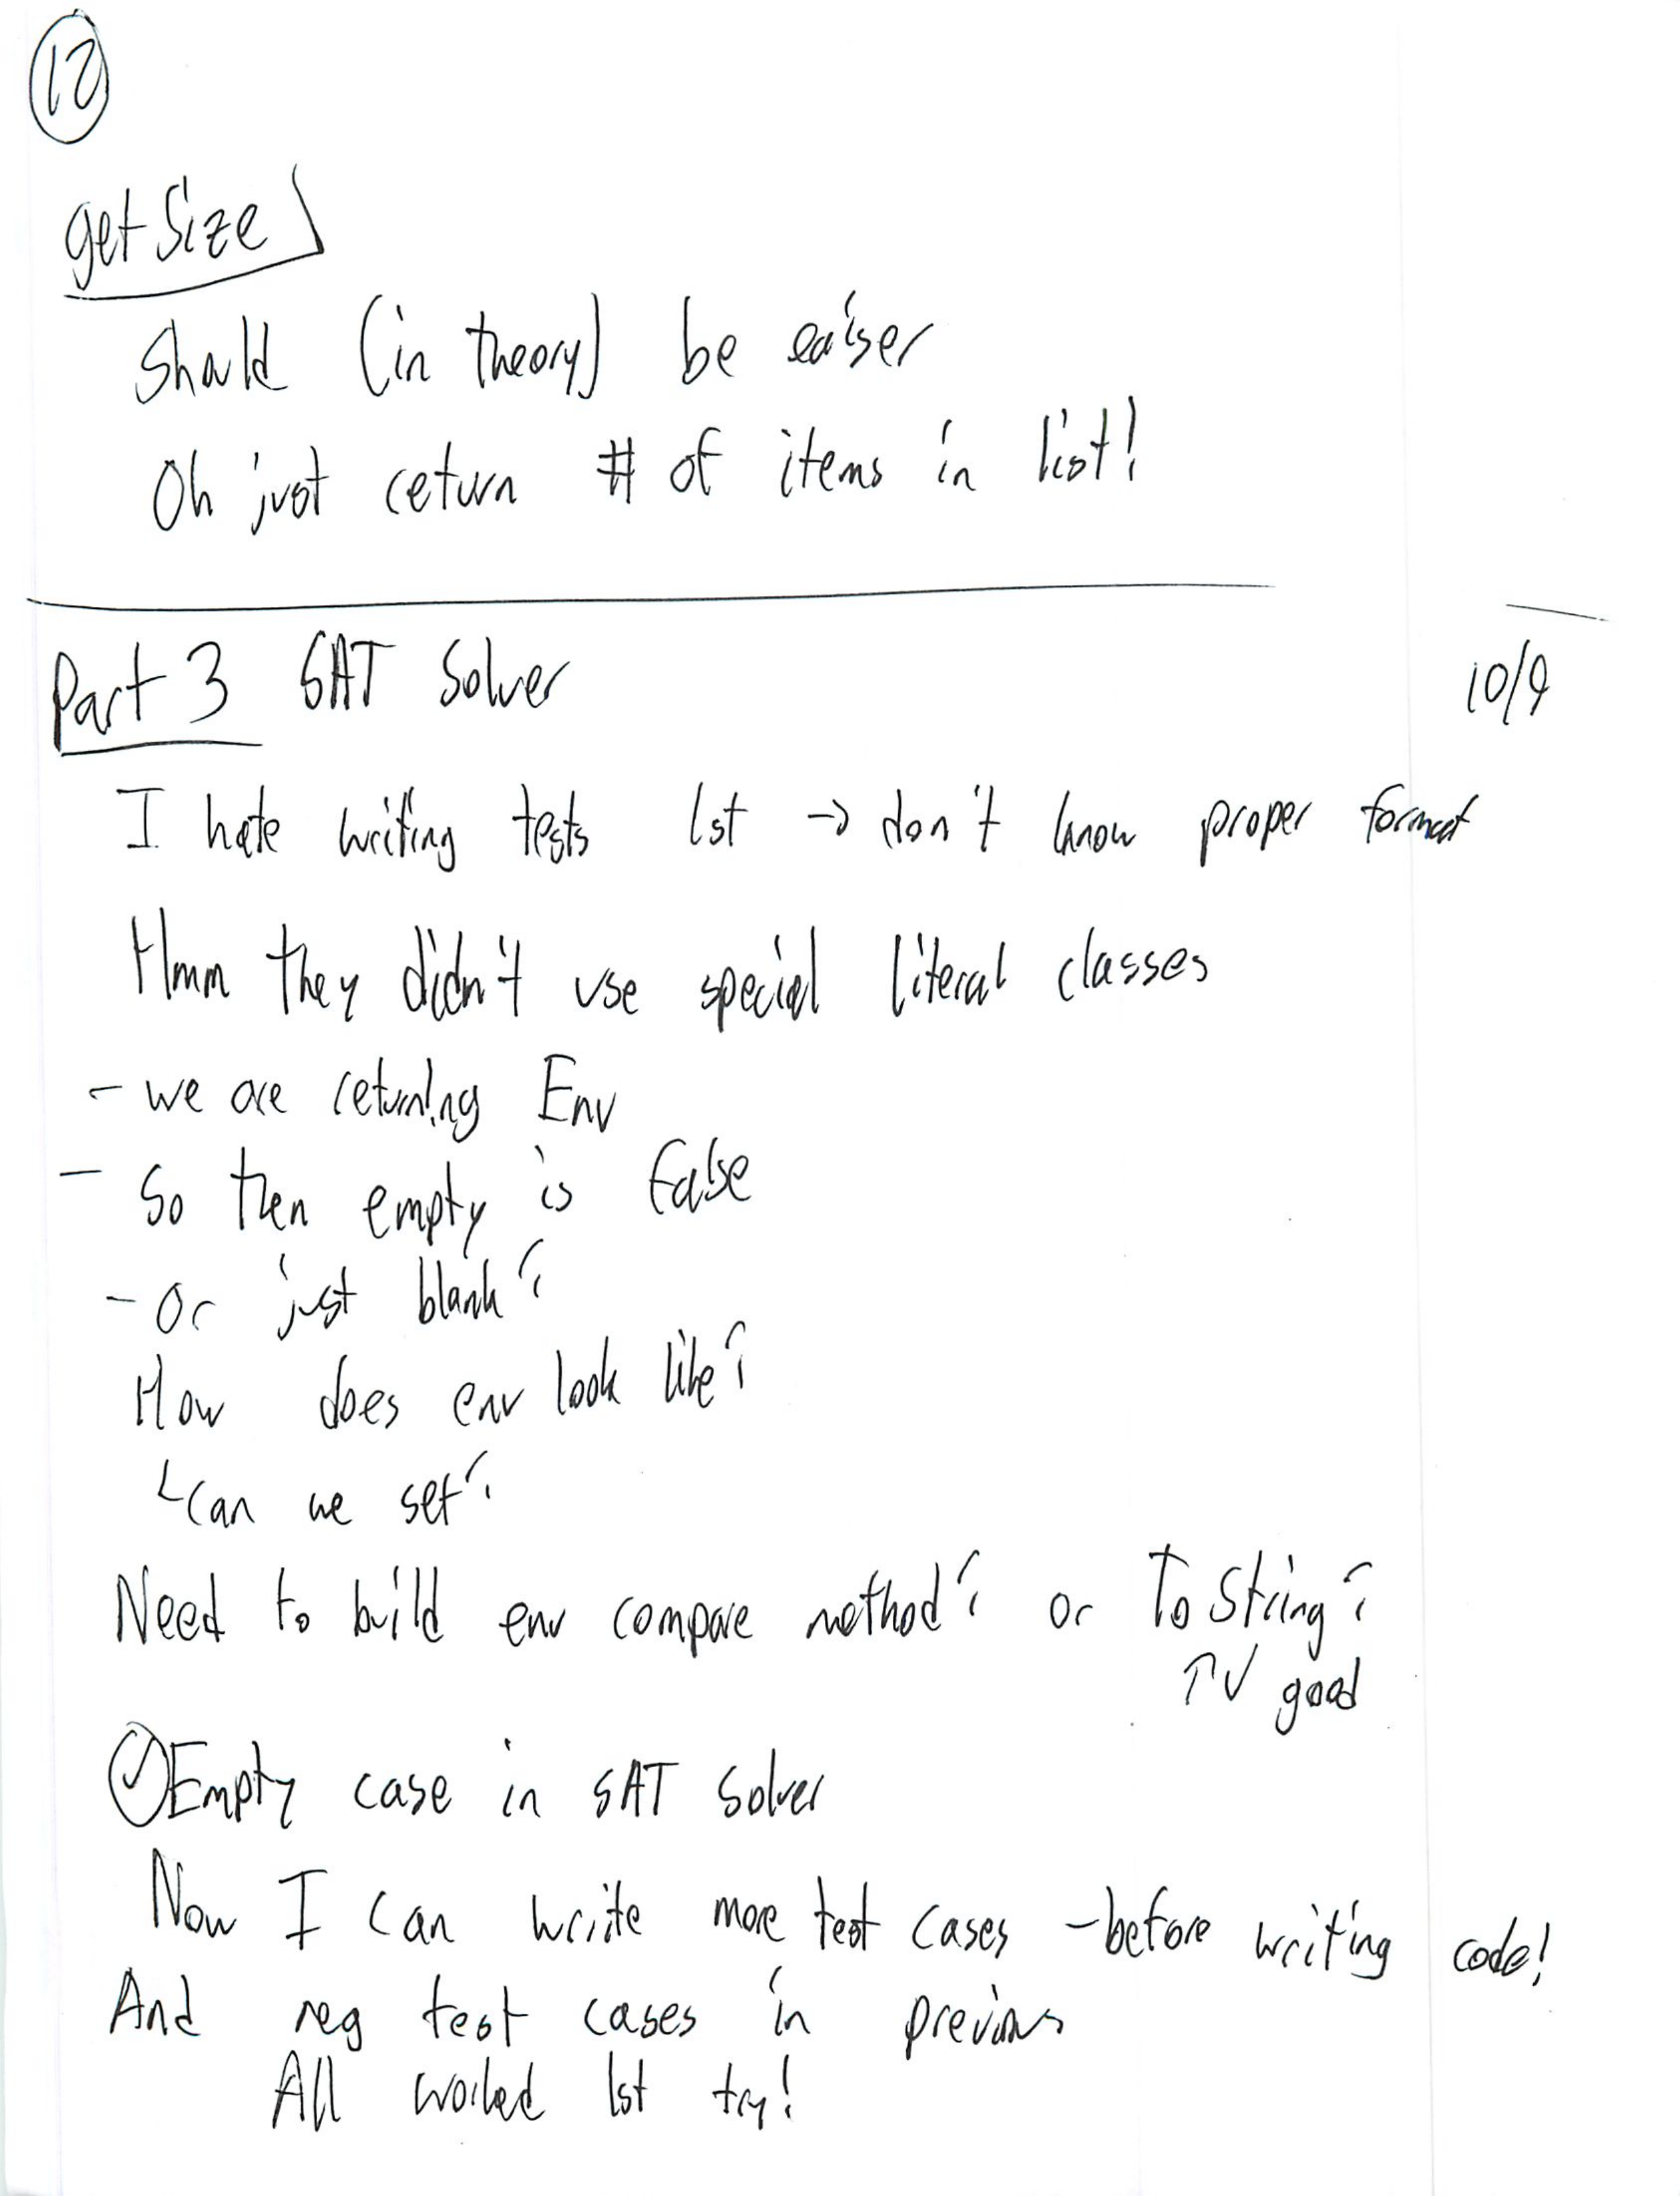 12
getSize
Should (in theory) be eaiser
Oh just return # of items in list!
Part 3 SAT Solver 10/9
I hate writing tests 1st → don't know proper format
Hmm they didn't use special literal classes
- we are returning Env
- So then empty is false
- Or just blank?
How does env look like?
└ can we set?
Need to build env compare method? or To String?
↑ ✓ good
✓ Empty case in SAT Solver
Now I can write more test cases - before writing code!
And reg test cases in previous
All worked 1st try!